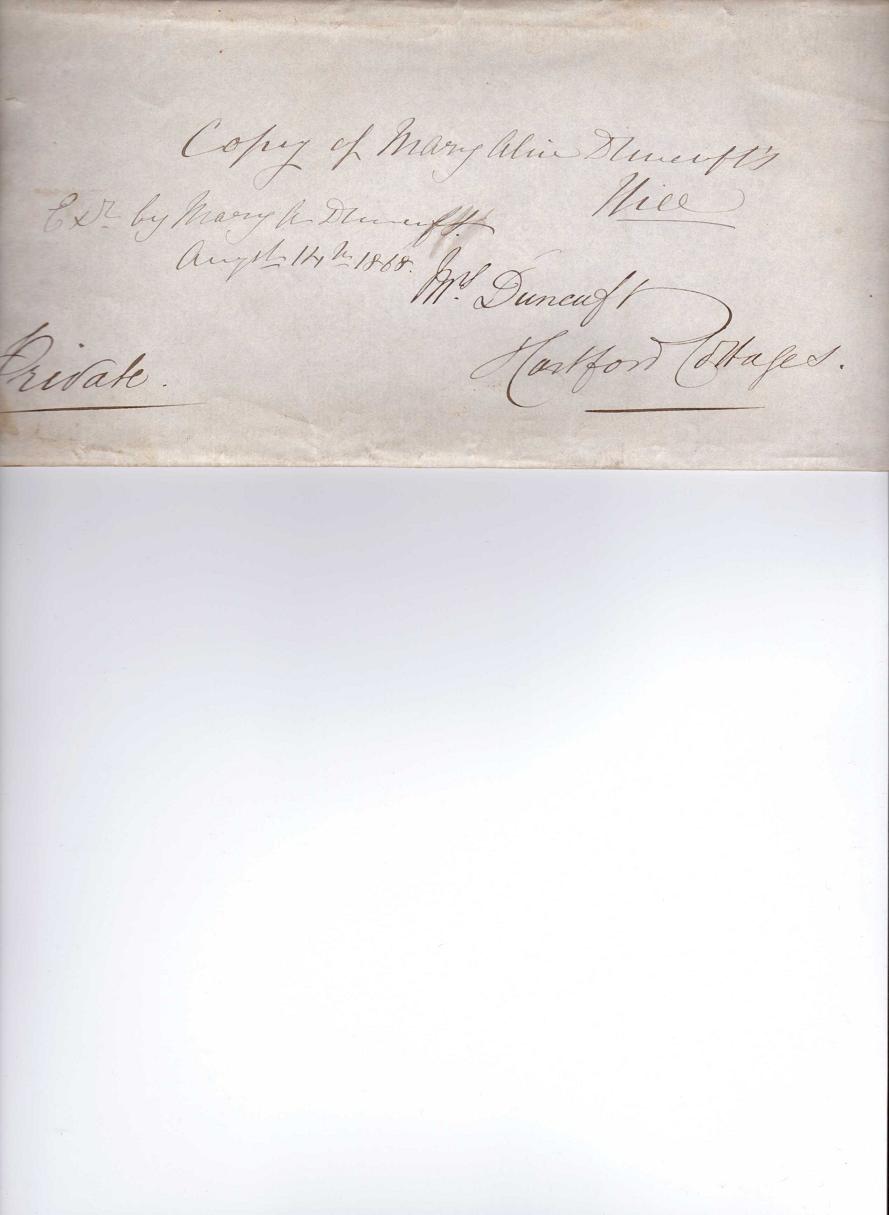 Copy of Mary Alice Duncuft's
Will
Exd by Mary A Duncuft.
Augst 14th 1868.
Mrs. Duncuft
Hartford Cottages.
Private.